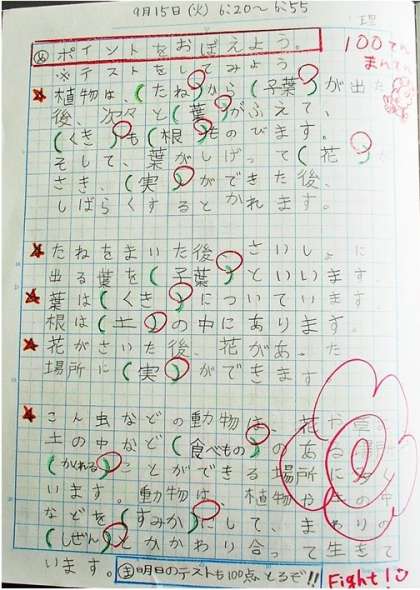 9月15日(火) 6:20〜6:55
理
め ポイントをおぼえよう。
100てん
まんてん
※テストをしてみよう
★植物は、(たね)から(子葉)が出た
後、次々と(葉)がふえて、
(くき)も(根)ものびます。
そして、葉がしげって(花)が
さき、(実)ができた後、
しばらくするとかれます。
★たねをまいた後、さいしょに
出る葉を(子葉)といいます
★葉は(くき)についています。
根は(土)の中にあります。
★花がさいた後、花があった
場所に(実)ができます
★こん虫などの動物は、花や
土の中など(食べもの)のある
(かくれる)ことができる場所に
います。動物は、植物や
などを(すみか)にして、まわりの
(しぜん)とかかわり合って生きて
います。
ま 明日のテストも100点とるぞ!!
Fight!